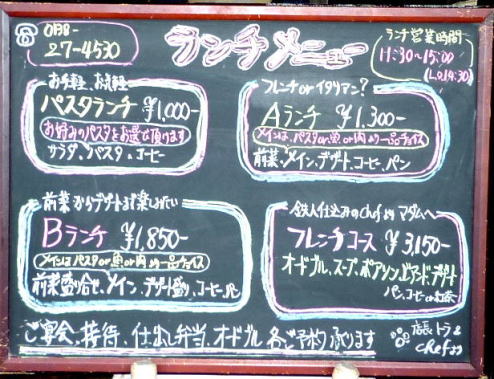 ☎ 0138-
27-4530
ランチメニュー
ランチ営業時間
11:30~15:00
(L.o14:30)
お手軽、お気軽
パスタランチ ¥1,000-
お好みのパスタをお選び頂けます
サラダ、パスタ、コーヒー
フレンチ or イタリアン?
Aランチ ¥1,300-
メインは、パスタor魚or肉より一品チョイス
前菜、メイン、デザート、コーヒー、パン
前菜からデザートまで楽しみたい
Bランチ ¥1,850-
メインはパスタor魚or肉より一品チョイス
前菜盛り合せ、メイン、デザート盛り、コーヒー、パン
鉄人仕込みのchefよりマダムへ
フレンチコース ¥3,150-
オードブル、スープ、ポアソン、ビアンド、デザート
パン、コーヒーor紅茶
ご宴会、接待、仕出し弁当、オードブル 各ご予約承ります
店長 トラ &
chefより